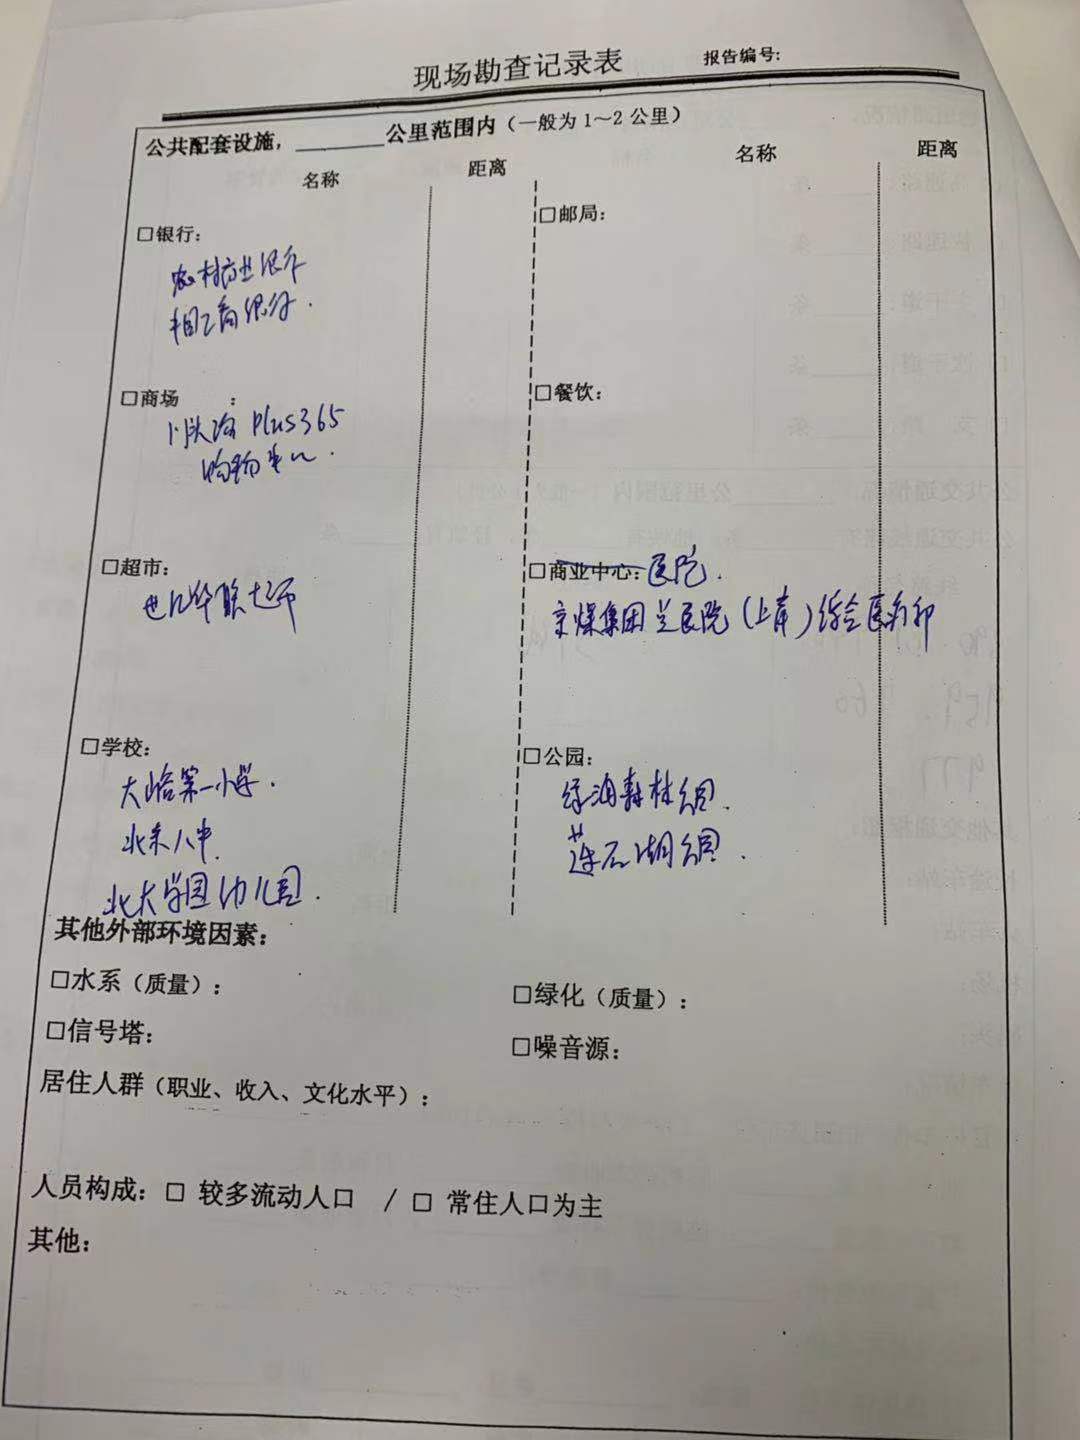 现场勘查记录表
报告编号:
公共配套设施，______公里范围内（一般为1～2公里）
名称 距离 名称 距离
□银行:
农村商业银行
□邮局:
□商场 :
Plus365
购物中心.
□餐饮:
□超市:
世纪华联超市
□商业中心:医院.
京煤集团总医院(
□学校:
大峪第一小学.
北京八中.
北大学园幼儿园.
□公园:
绿海森林公园.
莲石湖公园.
其他外部环境因素:
□水系（质量）:
□绿化（质量）:
□信号塔:
□噪音源:
居住人群（职业、收入、文化水平）:
人员构成: □ 较多流动人口 / □ 常住人口为主
其他: